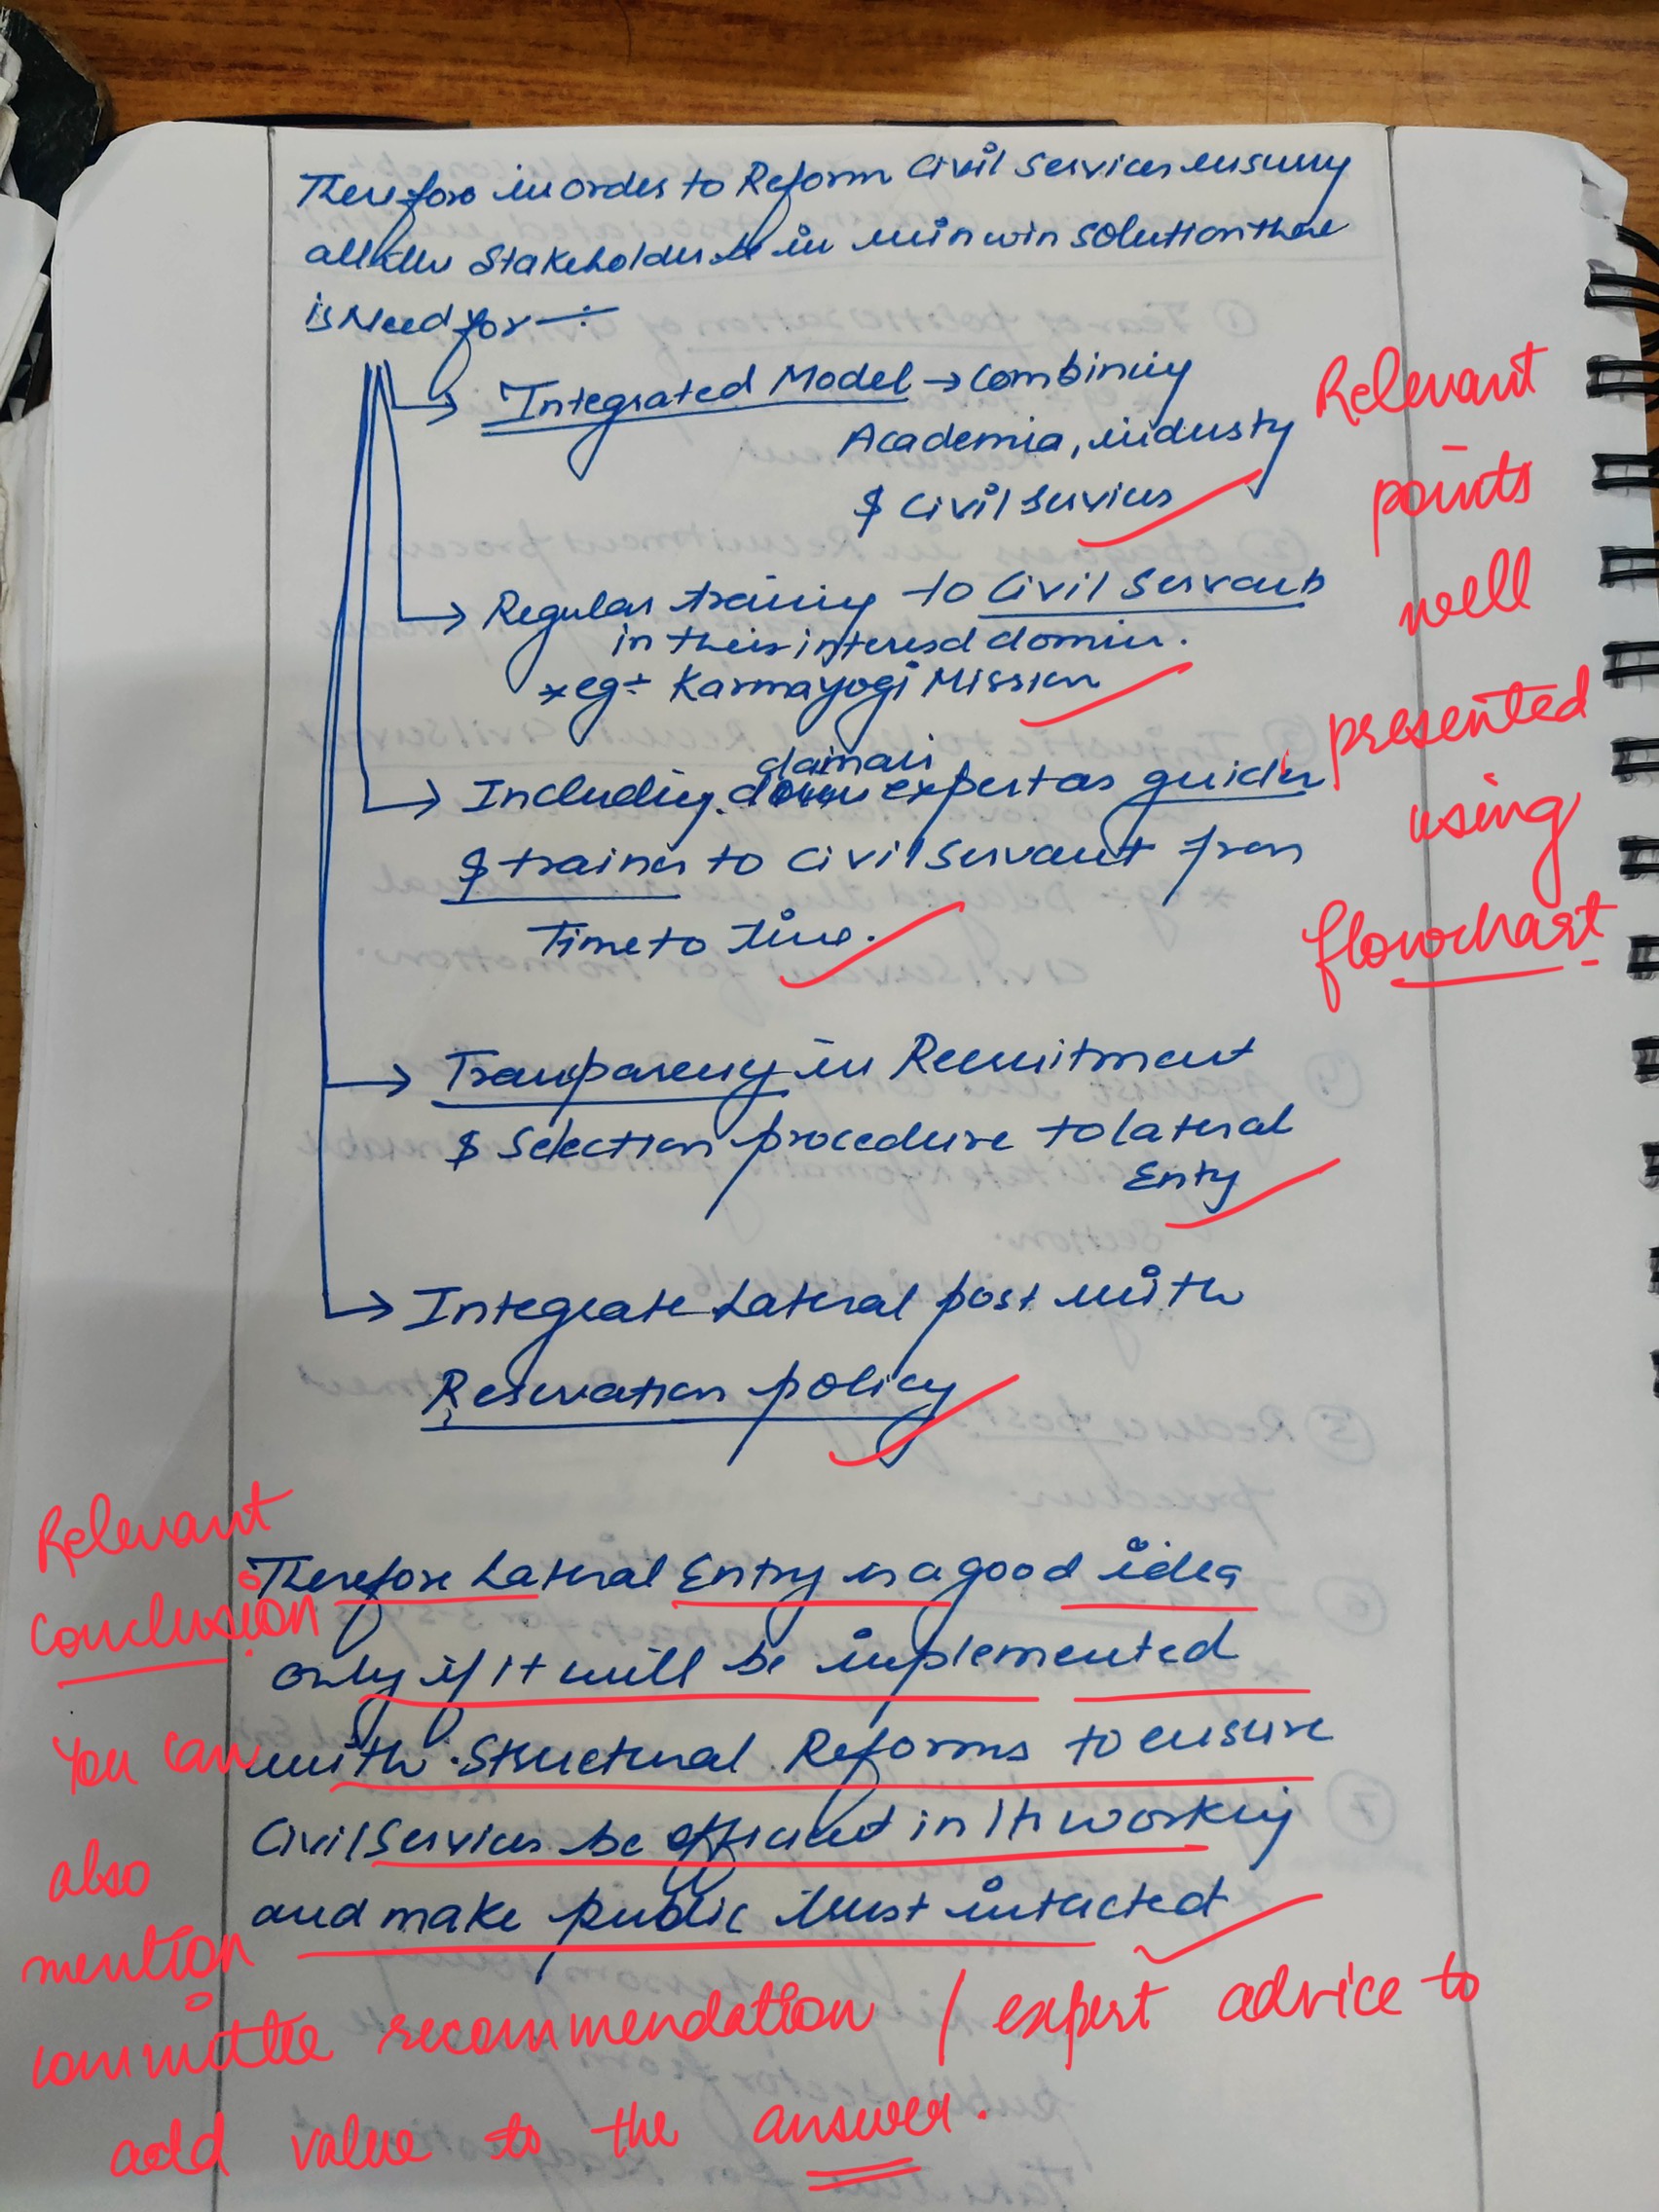 Therefore in order to Reform Civil Services ensuring
all the Stakeholders be in win win solution there
is Need for :-
→ Integrated Model → Combining
Academia, industry
& Civil Services
→ Regular training to Civil Servants
in their interesed domin.
* eg:- Karmayogi Mission
domain
→ Including expert as guider
& trainer to Civil Servant from
Time to time.
→ Transparency in Recruitment
& Selection procedure to lateral
Entry
→ Integrate Lateral post with
Reservation policy
Relevant
points
well
presented
using
flowchart
Therefore Lateral Entry is a good idea
only if it will be implemented
with Structural Reforms to ensure
Civil Services be efficient in its working
and make public trust intacted
Relevant
conclusion
You can
also
mention
committee recommendation / expert advice to
add value to the answer.